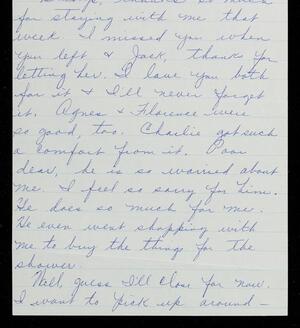 so much
for staying with me that
week. I missed you when
you left & Jack, thanks for
letting her. I love you both
for it & I'll never forget
it. Agnes & Florence were
so good, too. Charlie got such
a comfort from it. Poor
dear, he is so worried about
me. I feel so sorry for him.
He does so much for me.
He even went shopping with
me to buy the thing for the
shower.
Well, guess I'll close for now.
I want to pick up around -